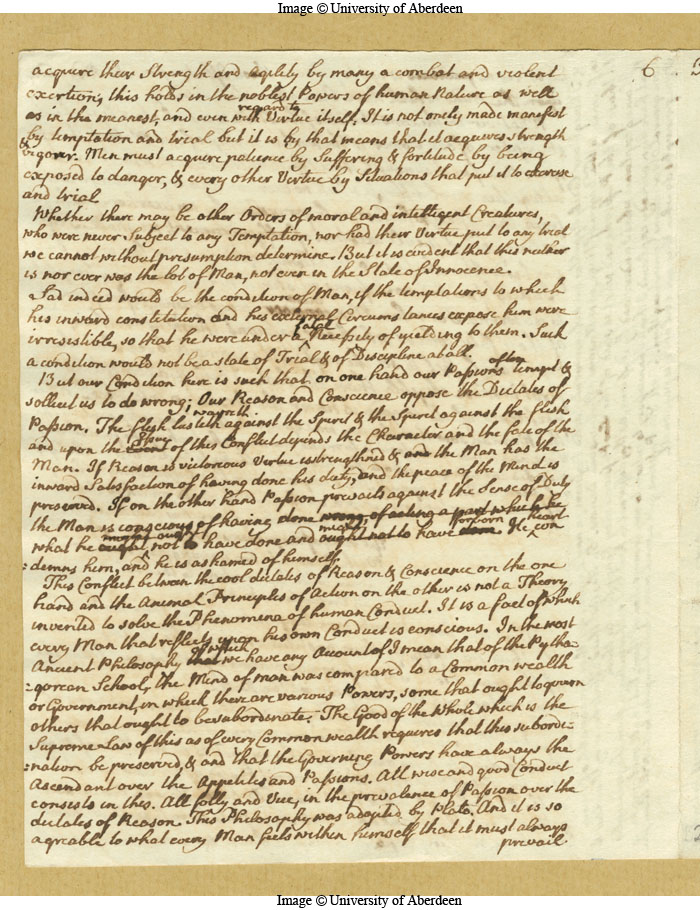 Image © University of Aberdeen
6
acquire their Strength and agility by many a combat and violent
exertion, this holds in the noblest Powers of human Nature as well
as in the meanest, and even with regard to Virtue itself. It is not onely made manifest
by temptation and trial but it is by that means that it acquires strength
& vigorer. Men must acquire patience by Suffering & fortitude by being
exposed to danger, & every other Virtue by Situations that put it to exercise
and trial
Whether there may be other Orders of moral and intelligent Creatures,
who were never Subject to any Temptation, nor had their Virtue put to any trial
we cannot without presumption determine. But it is evident that this neither
is nor ever was the lot of Man, not even in the State of Innocence.
Sad indeed would be the condition of Man, if the temptations to which
his inward constitution and his external Circumstances expose him were
irresistible, so that he were under a fatal Necessity of yielding to them. Such
a condition would not be a state of Trial & of Discipline at all.
But our Condition here is such that on one hand our Passions often tempt &
sollicit us to do wrong; Our Reason and Conscience oppose the Dictates of
Passion. The flesh lusteth warreth against the Spirit & the Spirit against the flesh
and upon the Event Issue of this Conflict depends the Character and the fate of the
Man. If Reason is victorious Virtue is strengthned & and the Man has the
inward Satisfaction of having done his duty, and the peace of the Mind is
preserved. If on the other hand Passion prevails against the Sense of Duty
the Man is conscious of having done wrong, of acting a part which he
what he ought, might & ought not to have done and ought might not to have done forborn His heart con
=demns him, and he is ashamed of himself.
This Conflict between the cool dictates of Reason & Conscience on the one
hand and the Animal Principles of Action on the other is not a Theory
invented to solve the Phenomena of human Conduct. It is a fact of which
every Man that reflects upon his own Conduct is conscious. In the most
Ancient Philosophy that of which we have any Account of I mean that of the Pytha=
=gorean School, the Mind of man was compared to a Common wealth
or Government, in which there are various Powers, some that ought to govern
others that ought to be subordinate. The Good of the Whole which is the
Supreme Law of this as of every Common wealth requires that this subordi=
=nation be preserved, & and that the Governing Powers have always the
Ascendant over the Appetites and Passions. All wise and good Conduct
consists in this. All folly and Vice, in the prevalence of Passion over the
dictates of Reason. This Philosophy was adopted by Plato. And it is so
agreable to what every Man feels within himself that it must always
prevail
Image © University of Aberdeen